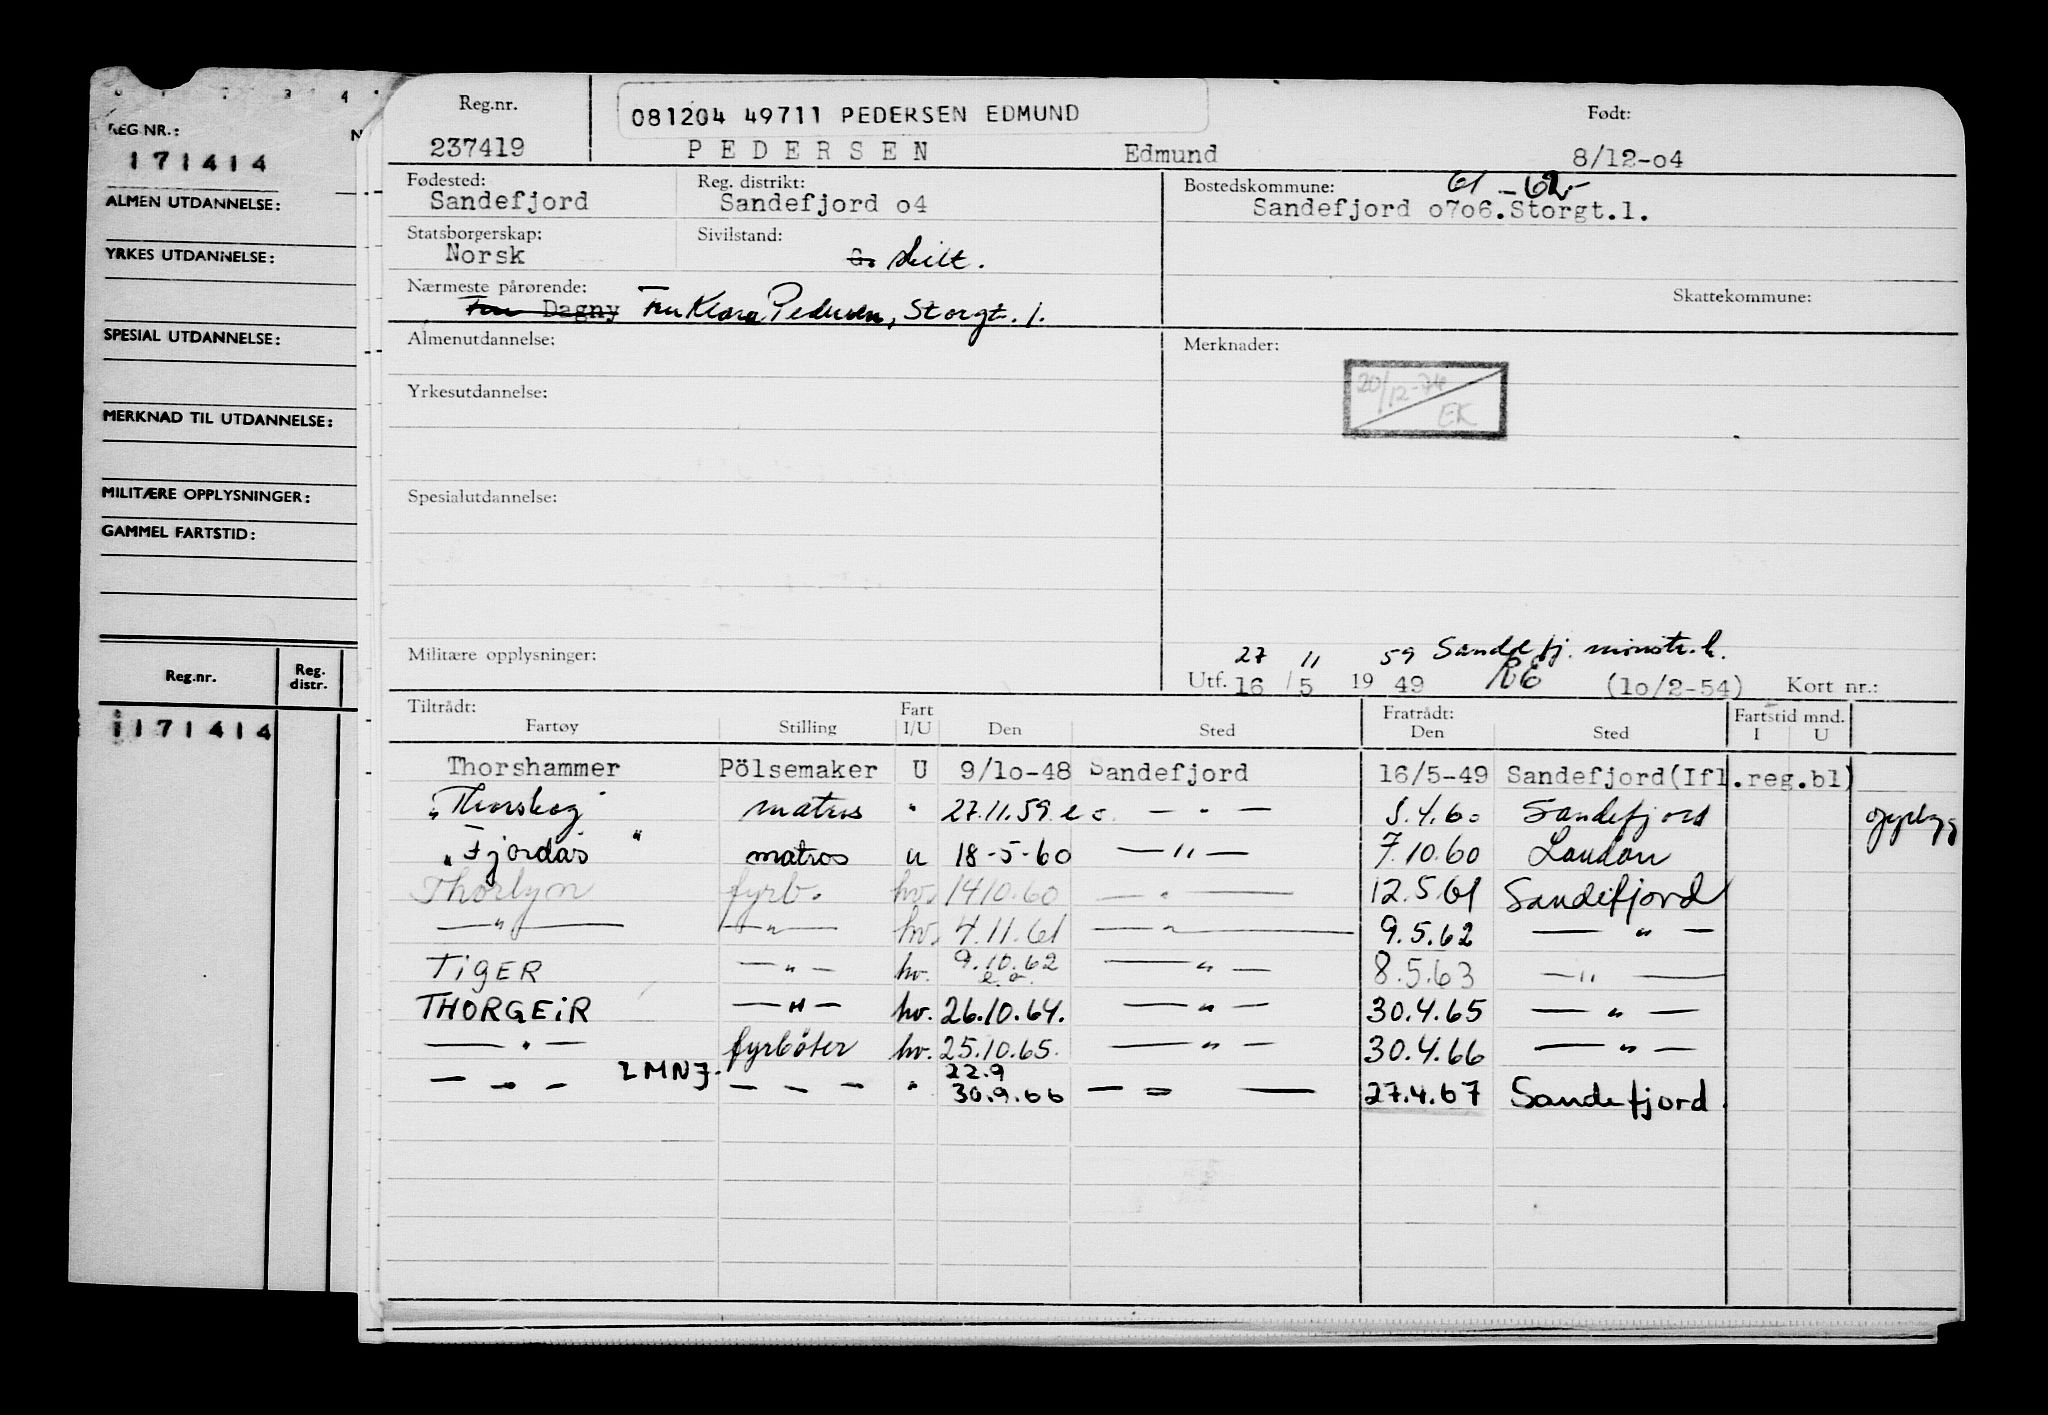 REG NR.:
171414
ALMEN UTDANNELSE:
YRKES UTDANNELSE:
SPESIAL UTDANNELSE:
MERKNAD TIL UTDANNELSE:
MILITÆRE OPPLYSNINGER:
GAMMEL FARTSTID:
Reg.nr. Reg. distr.
171414
Reg.nr. 081204 49711 PEDERSEN EDMUND Født:
237419 PEDERSEN Edmund 8/12-04
Fødested: Reg. distrikt: Bostedskommune: 61 - 62-
Sandefjord Sandefjord 04 Sandefjord 0706. Storgt.1.
Statsborgerskap: Sivilstand:
Norsk G. skilt.
Nærmeste pårørende: Skattekommune:
Fru Dagny Fru Klara Pedersen, Storgt. 1.
Almenutdannelse: Merknader:
20/12-74
EK
Yrkesutdannelse:
Spesialutdannelse:
Militære opplysninger: 27 11 59 Sandefj. mønstr.k.
Utf. 16 / 5 19 49 (10/2-54) Kort nr.:
Tiltrådt: Fart Fratrådt: Fartstid mnd.
Fartøy Stilling I/U Den Sted Den Sted I U
Thorshammer Pölsemaker U 9/10-48 Sandefjord 16/5-49 Sandefjord(Ifl.reg.bl)
"Thorskog" matros " 27.11.59. — " — 5.4.60 Sandefjord
"Fjordås" matros u 18-5-60 — " — 7.10.60 London
Thorlyn fyrb. hv. 14 10.60 — " — 12.5.61 Sandefjord
— " — — " — hv. 4.11.61 — " — 9.5.62 — " —
TiGER — " — hv. 9.10.62 e.o. — " — 8.5.63 — " —
THORGEiR — " — hv. 26.10.64. — " — 30.4.65 — " —
— " — fyrböter hv. 25.10.65. — " — 30.4.66 — " —
— " — LMNJ. — " — " 22.9 30.9.66 — " — 27.4.67 Sandefjord